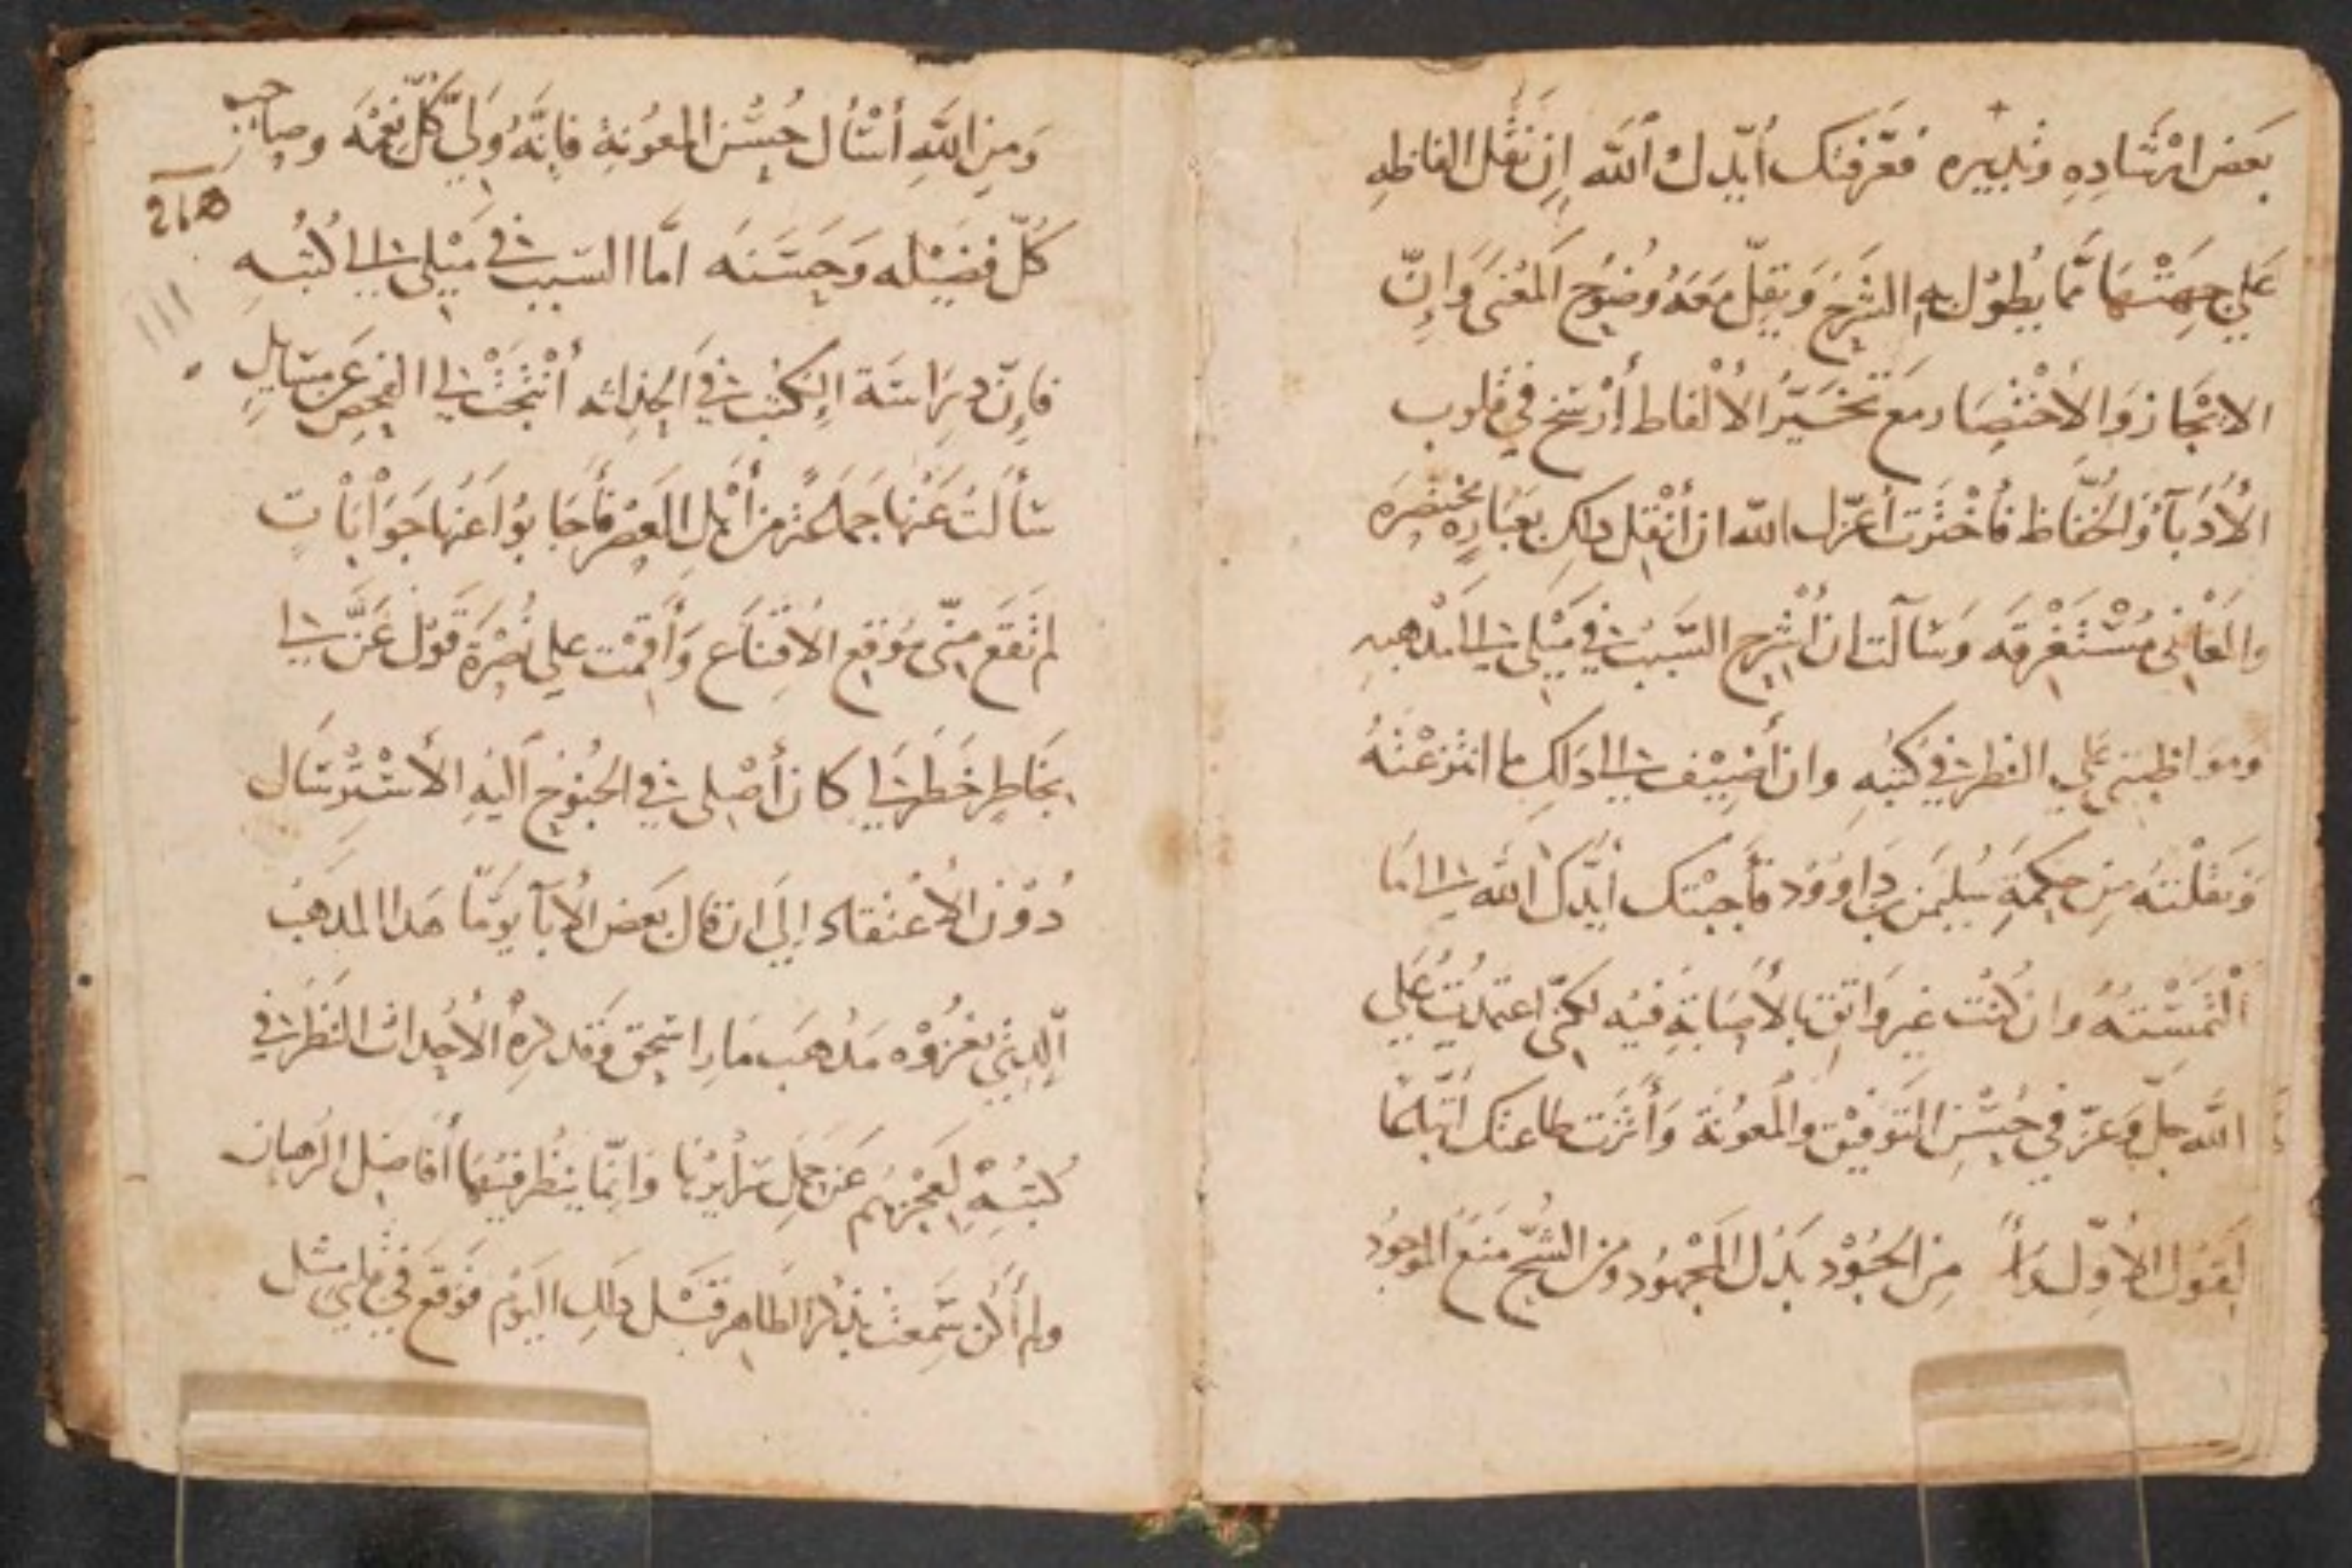 بَعض ارْشَادِهِ وتَدبيره فعَرّفتك أيّدك الله ان نَقْل الفاظهِ
عَلي جِهَتْهَا مّما يُطوْل بهِ الشَرحَ وَيقلّ مَعَهُ وضُوح المَعْنى وَانّ
الايْجَاز وَالاخْتصَار مَع تَخَيّرُ الألْفاط أرْسَخ في قلوب
الأُدَبآ وَالحُفّاظ فأخْتَرت أعزّك الله ان أنْقل دلك بعبَارهٍ مختصَرَه
والمَعَاني مُسْتَغْرقَه وَسَالت ان أشْرح السَّبَب في مَيْلي الى مَذهبهِ
وموَاظبتي عَلي النظر في كتبهِ وان أضِيْف الى دَلك ما انتَزعْتهُ
وَنقلْتهُ مِن حِكمَةِ سُليمَن بن دَاووُد فأَجَبْتك أيّدَكَ الله الى مَا
ألْتَمسْتهُ وان كُنْت غير وَاثق بالأصَابةِ فيْه لكنّي اعتمدتُ عَلي
الله جلّ وَعَزّ في حُسْن التَوفيْق والمَعوُنَة وَأَثَرت طاعتك
القَول الأوّل من الجُوْد بَذل المَجْهوُد ومن الشُحّ مَنعَ الموجوُد
وَمِن اللّهِ أسْأل حُسْن المعوُنةِ فانّهُ وَليّ كُلّ نعْمَه وصَاحب
كلّ فضيْله وَحَسَنَه امّا السَبب في مَيْلي الى كتبهِ
فاِنّ دِرَاسَة الكتب في الحداثه أنتجَتْ لي الفحص عَن مسَايل
سَألتُ عَنْها جمَاعَةً من أهْل العَصْر فأجَابوُا عَنها جَوَابَاتٍ
لم تَقَع منّي مَوْقع الاقنَاع وَأقمْت علي نصْرَة قَوْل عَنَّ لي
بخَاطِر خَطَر لي كان أصْلي في الجُنوُح اليْهِ الأسْترْسَال
دُوْن الاعْتقاد اِلَى ان قال بَعض الأبآ يَوْمًا هَدا المدهب
الّدي تعْزُوْه مَدْهَب مَار اسْحق وَقد كرهُ الأحْدَاث النَظر في
كُتبُهِ لعَجْزهُم عَن حَمل سَرَايرْهَا وَانّما ينظُر فيْهَا أفاضِل الرُهبان
ولم أكن سَمعتُ بذكر الطاهر قَبْل دلك اليَوْم فوَقعَ في قلبي مثل